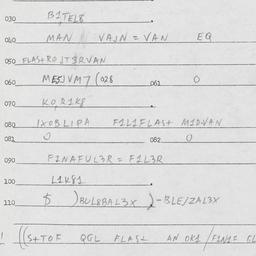 030 B1TEL8
040 MAN VAJN = VAN EQ
050 FLAS+ROJT1RVAN
060 MESJVM7 (028 061 O
070 KO,R1K8
080 IXOBLIPA F1L1FLAS+ M1DVAN
081 O 082 O
090 F1NAFUL3R = F1L3R
100 L1K81
110 $ )BUL8BAL3X )-BLE/ZAL3X
((S+TOF QGL FLAS+ AN OK1 /F1N1E